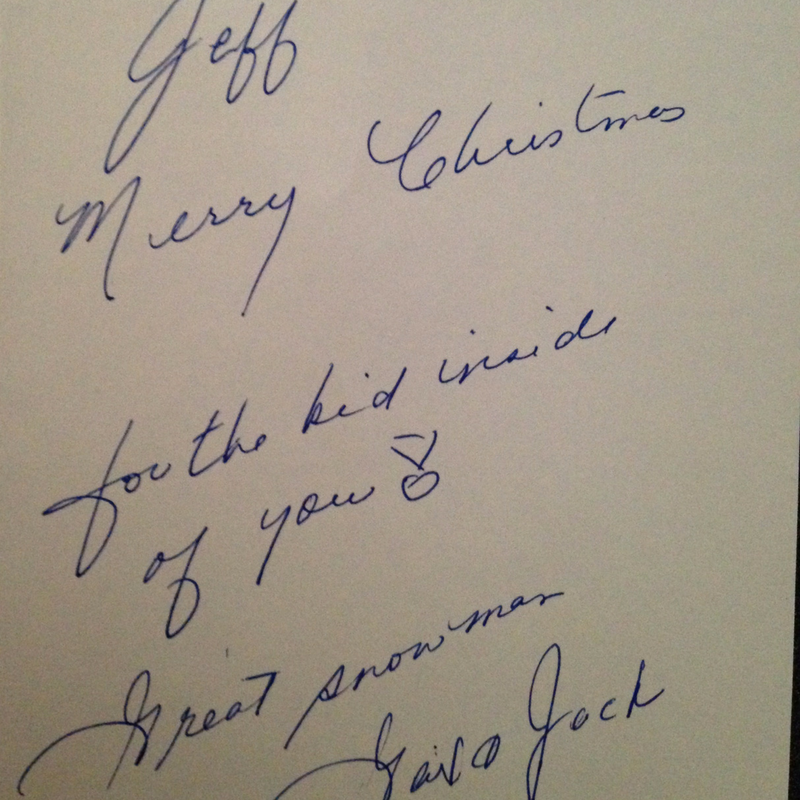 Jeff
Merry Christmas
for the kid inside
of you
Great snowman
Jack